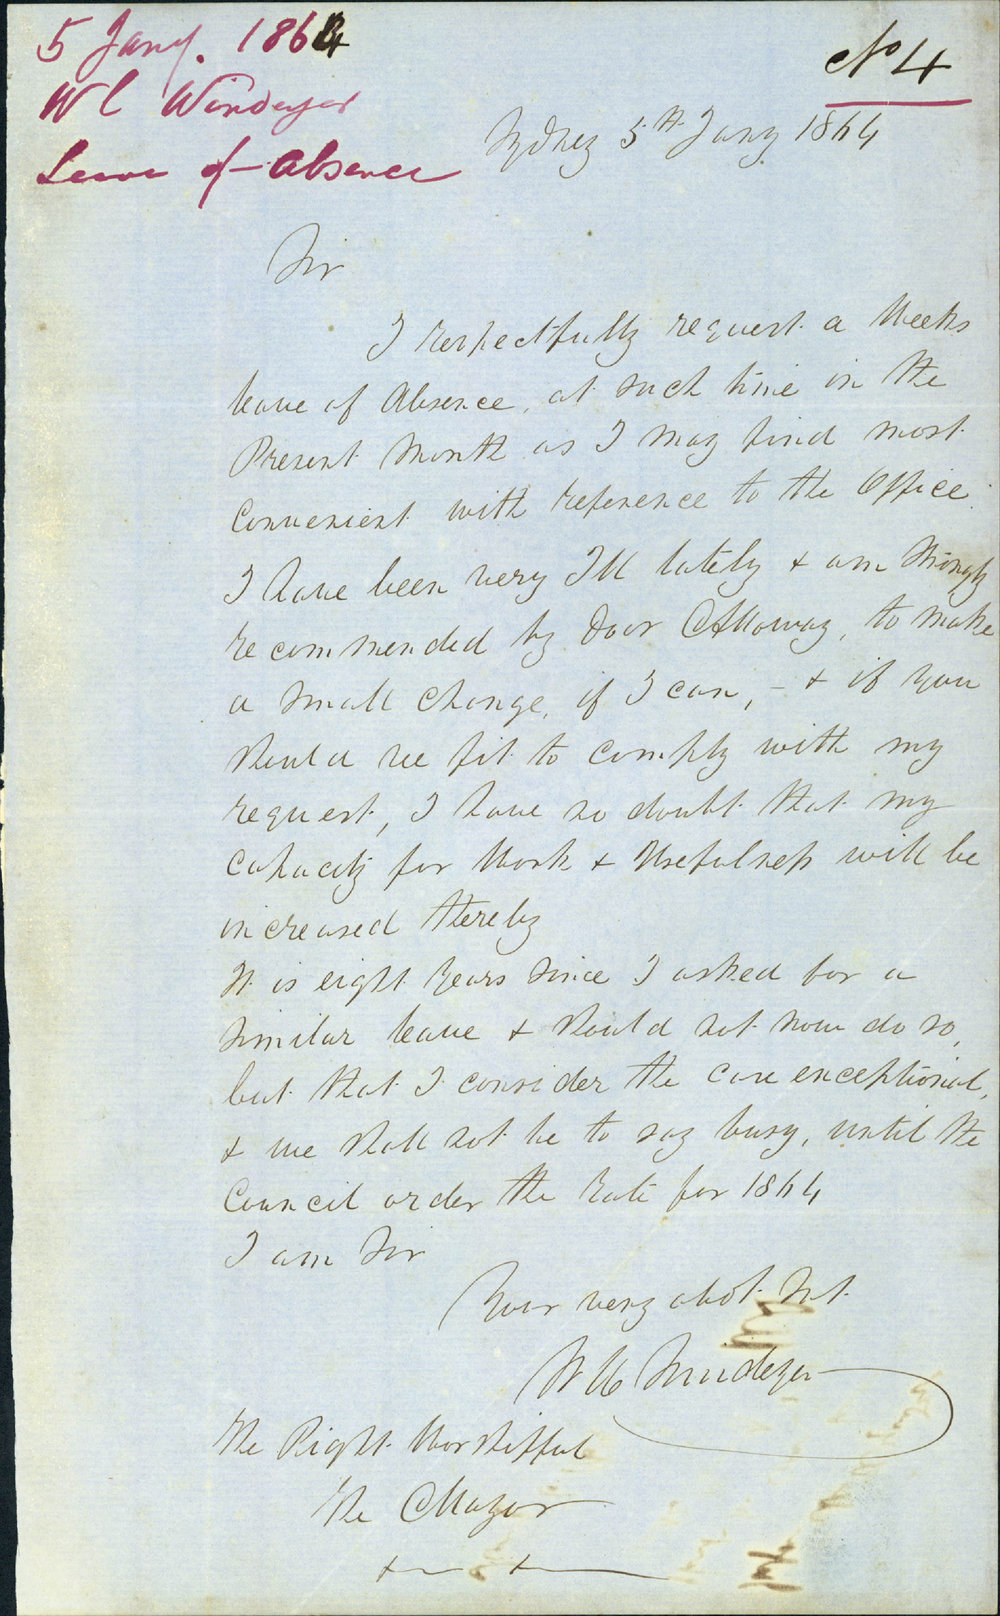 5 Jany. 1864
W C Windeyer
Leave of Absence
No 4
Sydney 5th Jany 1864
Sir
I respectfully request a Weeks
leave of Absence, at such time in the
Present Month as I may find most
Convenient with reference to the Office.
I have been very Ill lately & am Strongly
recommended by Door Alloway, to make
a small Change, if I can, - & if you
should see fit to comply with my
request, I have no doubt that my
capacity for Work & Usefulness will be
increased thereby
It is eight Years since I asked for a
similar leave & should not now do so,
but that I consider the case exceptional,
& we shall not be to say busy, until the
Council order the Rate for 1864
I am Sir
Your very obdt. Svt.
W C Windeyer
The Right Worshipful
The Mayor